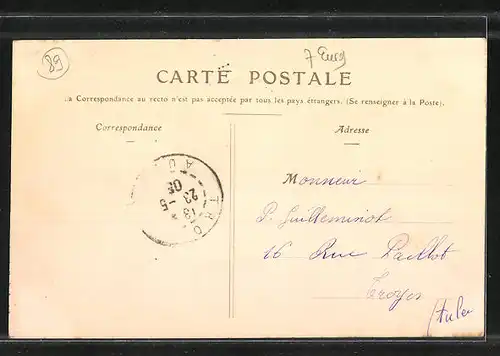 89
7 Eurg
CARTE POSTALE
La Correspondance au recto n'est pas acceptée par tous les pays étrangers. (Se renseigner à la Poste).
Correspondance
Adresse
TRO
AU
13
23 - 5
05
Monsieur
P. Guilleminot
16 Rue Paillot
Troyes